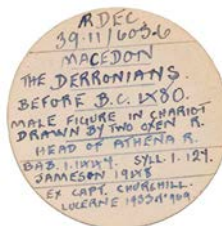 RDEC
39.11/603.6
MACEDON
THE DERRONIANS.
BEFORE B.C. 480.
MALE FIGURE IN CHARIOT
DRAWN BY TWO OXEN R.
HEAD OF ATHENA R.
SYLL 1. 124.
JAMESON
EX CAPT. CHURCHILL.
LUCERNE